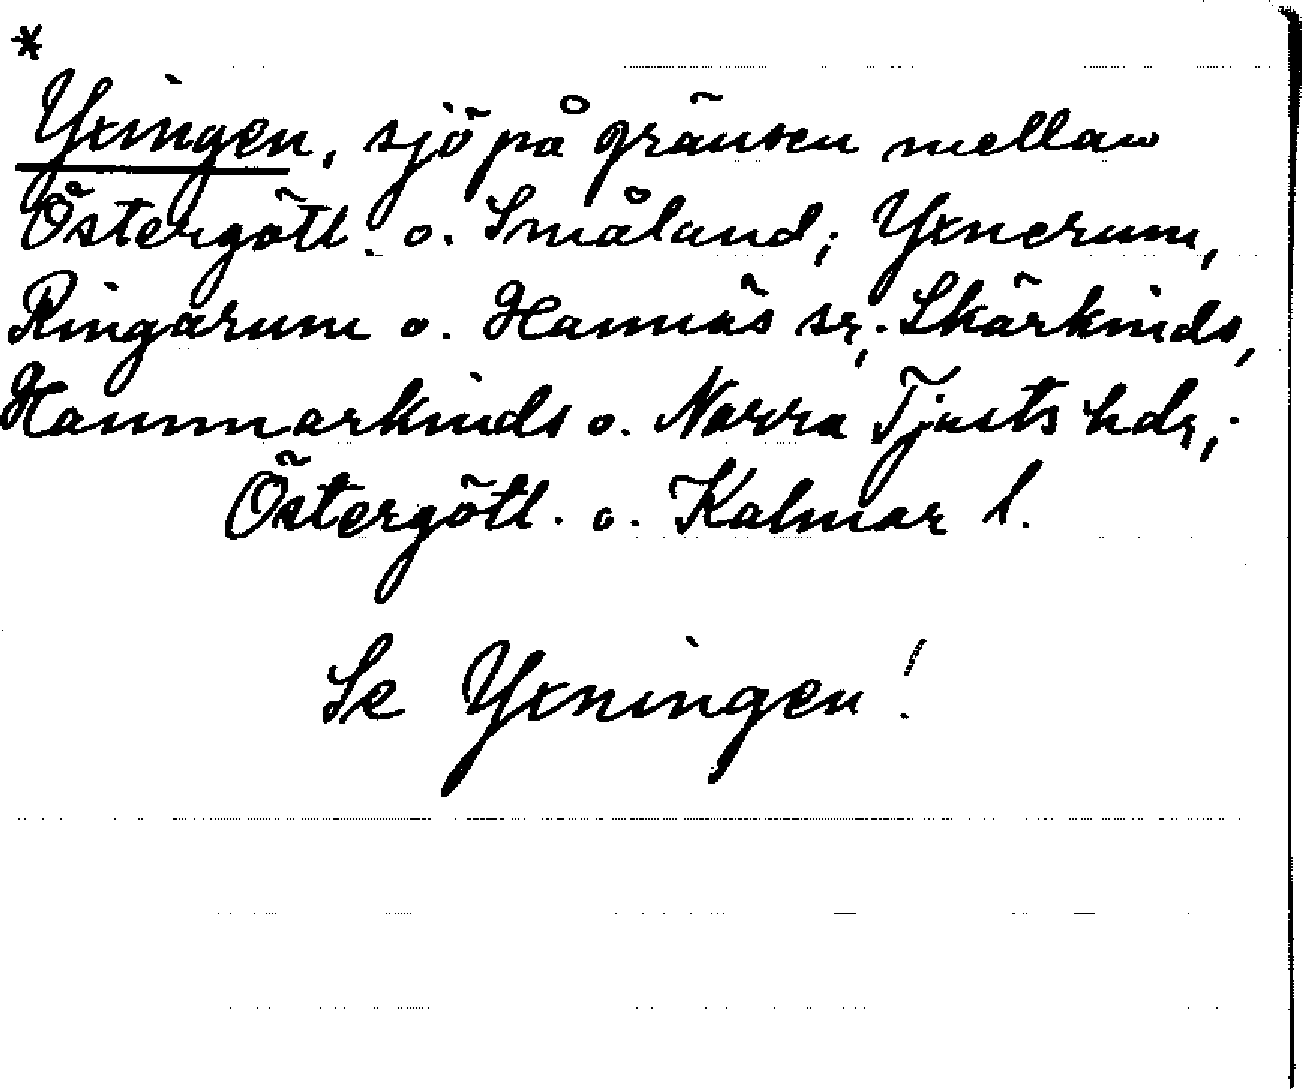 *
Yxingen, sjö på gränsen mellan
Östergötl. o. Småland; Yxnerum,
Ringarum o. Hannäs sr,. Skärkinds,
Hammarkinds o. Norra Tjusts hdr,.
Östergötl. o. Kalmar l.
Se Yxningen!